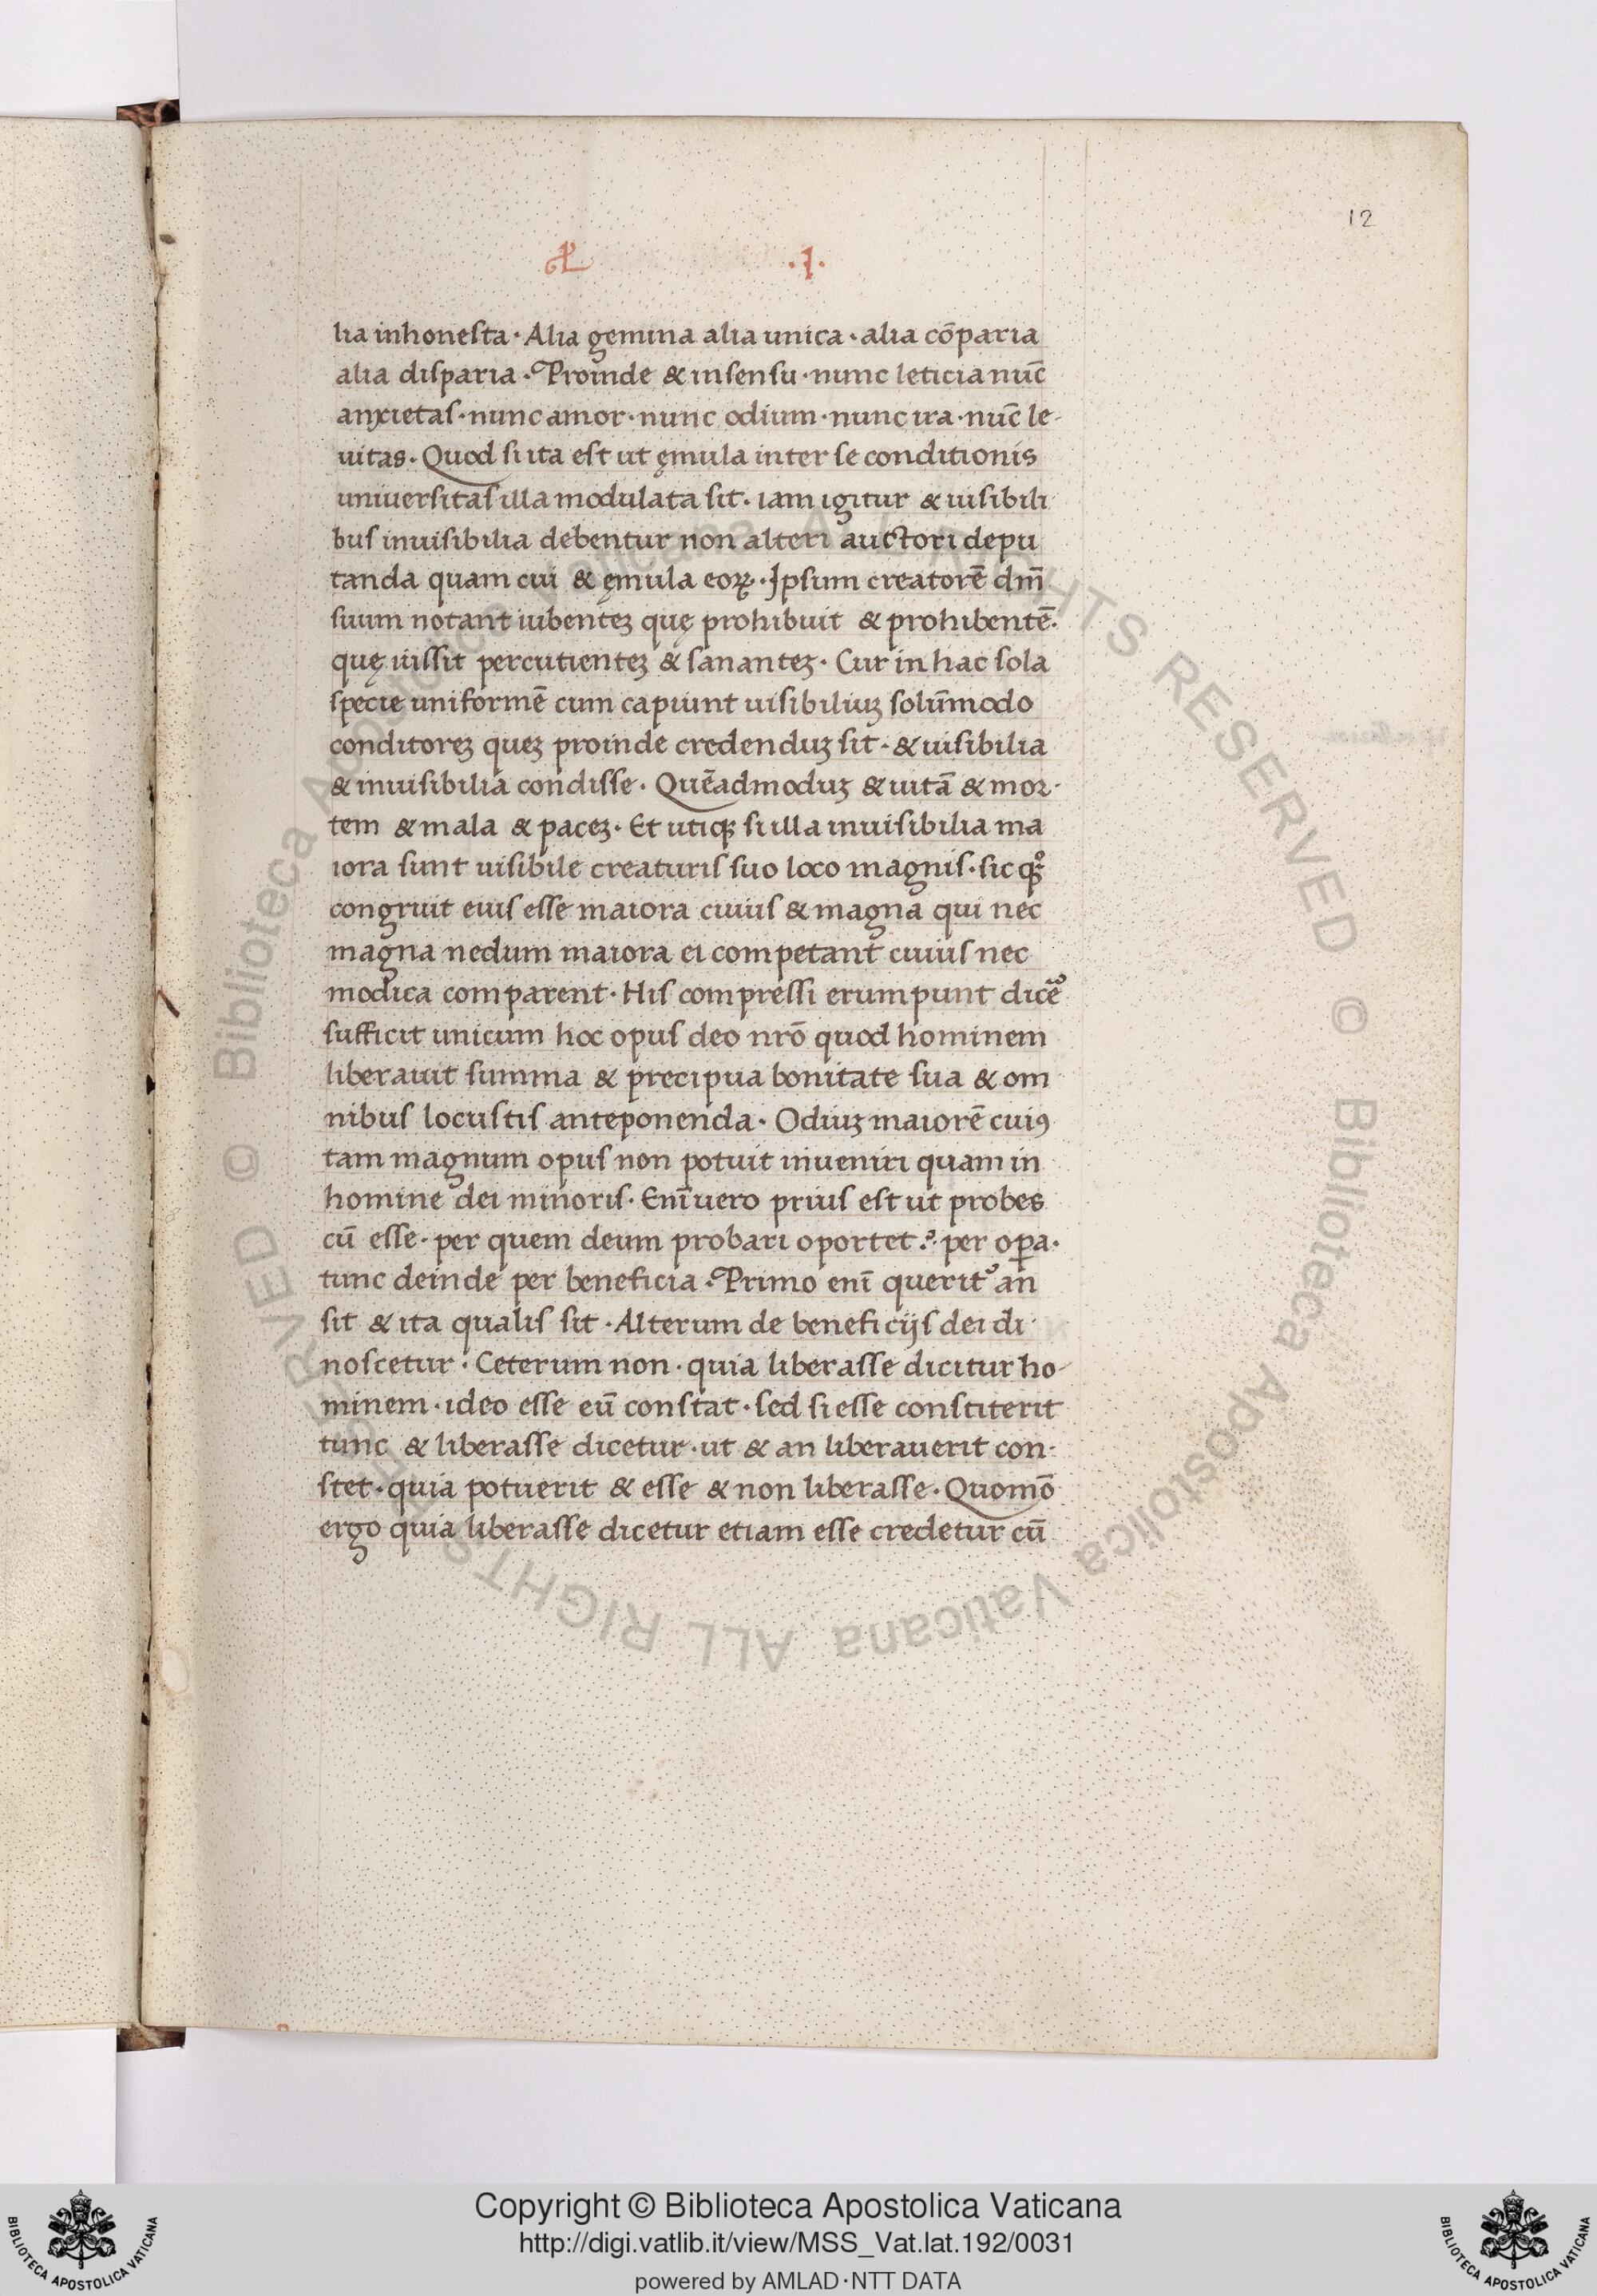 12
.I.
lia inhonesta · Alia gemina alia unica · alia cōparia
alia disparia · Proinde & in sensu · nunc leticia nūc
anxietas · nunc amor · nunc odium · nunc ira · nūc le-
uitas · Quod si ita est ut ęmula inter se conditionis
uniuersitas illa modulata sit · iam igitur & uisibili
bus inuisibilia debentur non alteri auctori depu
tanda quam cui & ęmula eoꝝ · Ipsum creatorē dm̄
suum notant iubenteꝫ quę prohibuit & prohibentē ·
quę iussit percutienteꝫ & sananteꝫ · Cur in hac sola
specie uniformē cum capiunt uisibiliuꝫ solūmodo
conditoreꝫ queꝫ proinde credenduꝫ sit · & uisibilia
& inuisibilia condisse · Quēadmoduꝫ & uitā & mor-
tem & mala & paceꝫ · Et utiqꝫ si illa inuisibilia ma
iora sunt uisibile creaturis suo loco magnis · sic qꝫº
congruit eius esse maiora cuius & magna qui nec
magna nedum maiora ei competant cuius nec
modica comparent · His compressi erumpunt dicē
sufficit unicum hoc opus deo nrō quod hominem
liberauit summa & precipua bonitate sua & om
nibus locustis anteponenda · Odiuꝫ maiorē cuiꝰ
tam magnum opus non potuit inueniri quam in
homine dei minoris · Enī uero prius est ut probes
cū esse · per quem deum probari oportet ? per oꝑa ·
tunc deinde per beneficia · Primo enī querit᷑ an
sit & ita qualis sit · Alterum de beneficijs dei di
noscetur · Ceterum non · quia liberasse dicitur ho-
minem · ideo esse eū constat · sed si esse constiterit
tunc & liberasse dicetur · ut & an liberauerit con-
stet · quia potuerit & esse & non liberasse · Quomō
ergo quia liberasse dicetur etiam esse credetur cū
© Biblioteca Apostolica Vaticana ALL RIGHTS RESERVED
© Biblioteca Apostolica Vaticana ALL RIGHTS RESERVED
Copyright © Biblioteca Apostolica Vaticana
http://digi.vatlib.it/view/MSS_Vat.lat.192/0031
powered by AMLAD·NTT DATA
BIBLIOTECA APOSTOLICA VATICANA
BIBLIOTECA APOSTOLICA VATICANA